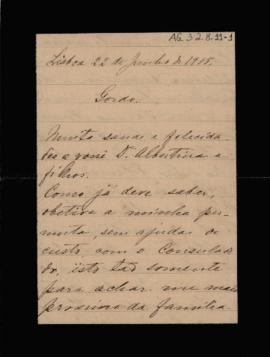 AG 3.2.8.11-1
Lisboa 22 de Junho de 1905.
Gordo.
Muita saude e felicida-
des a voce D. Albertina e
filhos.
Como já deve saber,
obtive a minha per-
muta, sem ajuda de
custo, com o Consulado
do, isto tão somente
para achar me mais
proximo da familia